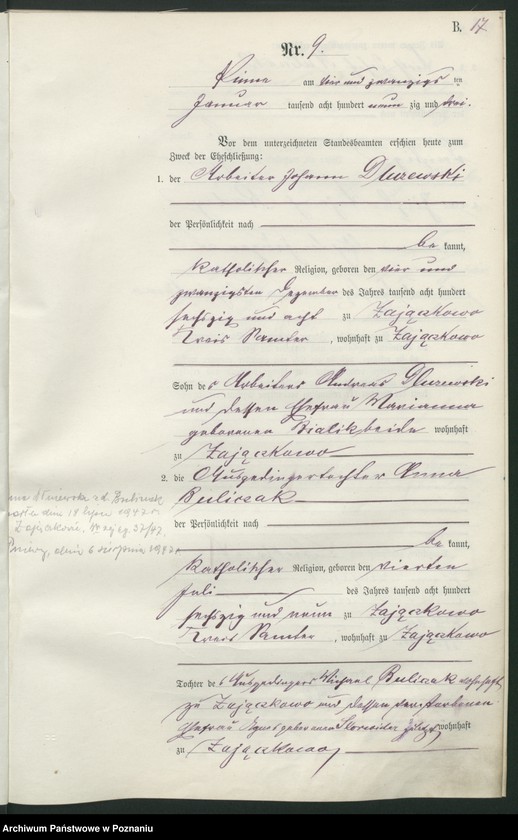 B. 17
Nr. 9.
Pinne am vier und zwanzigs ten
Januar tausend acht hundert neun zig und drei.
Vor dem unterzeichneten Standesbeamten erschien heute zum
Zweck der Eheschließung:
1. der Arbeiter Johann Dluzewski
der Persönlichkeit nach
be kannt,
katholischer Religion, geboren den vier und
zwanzigsten Dezember des Jahres tausend acht hundert
sechszig und acht zu Zajączkowo
Kreis Samter, wohnhaft zu Zajączkowo
Sohn des Arbeiters Andreas Dluzewski
und dessen Ehefrau Marianna
geborenen Bialik beide wohnhaft
zu Zajączkowo
2. die Ausgedingertochter Anna
Buliczak
der Persönlichkeit nach
be kannt,
katholischer Religion, geboren den vierten
Juli des Jahres tausend acht hundert
sechszig und neun zu Zajączkowo
Kreis Samter, wohnhaft zu Zajączkowo
Tochter des Ausgedingers Michael Buliczak wohnhaft
zu Zajączkowo und dessen verstorbenen
Ehefrau Agnes geborenen zuletzt wohnhaft
zu Zajączkowo,
dnia 6 sierpnia 1947 r.
Archiwum Państwowe w Poznaniu